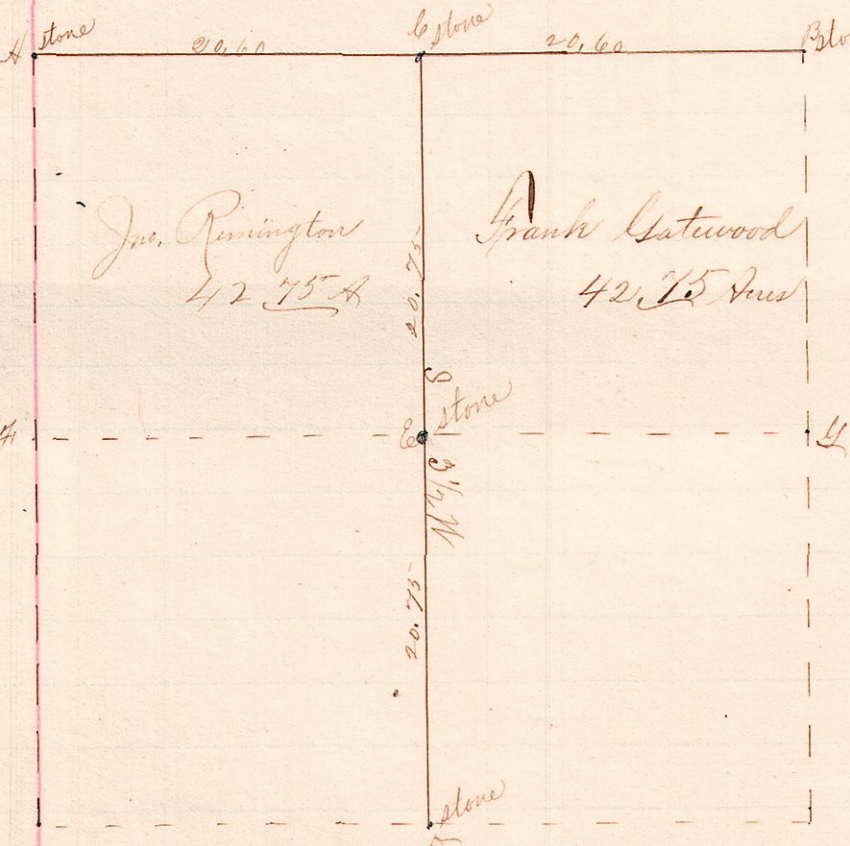 A stone
20,60
C stone
20,60
B sto
Jno. Remington
42.75 A
Frank Gatewood
42.75 Acres
20.75
S
E stone
F
G
3½ W
20.75
stone